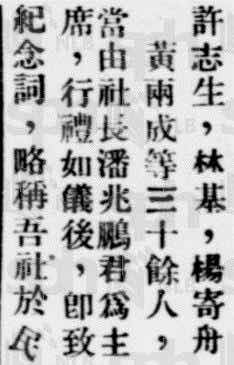 許志生，林基，楊寄舟
黃兩成等三十餘人，
當由社長潘兆鵬君爲主
席，行禮如儀後，卽致
紀念詞，略稱吾社於民